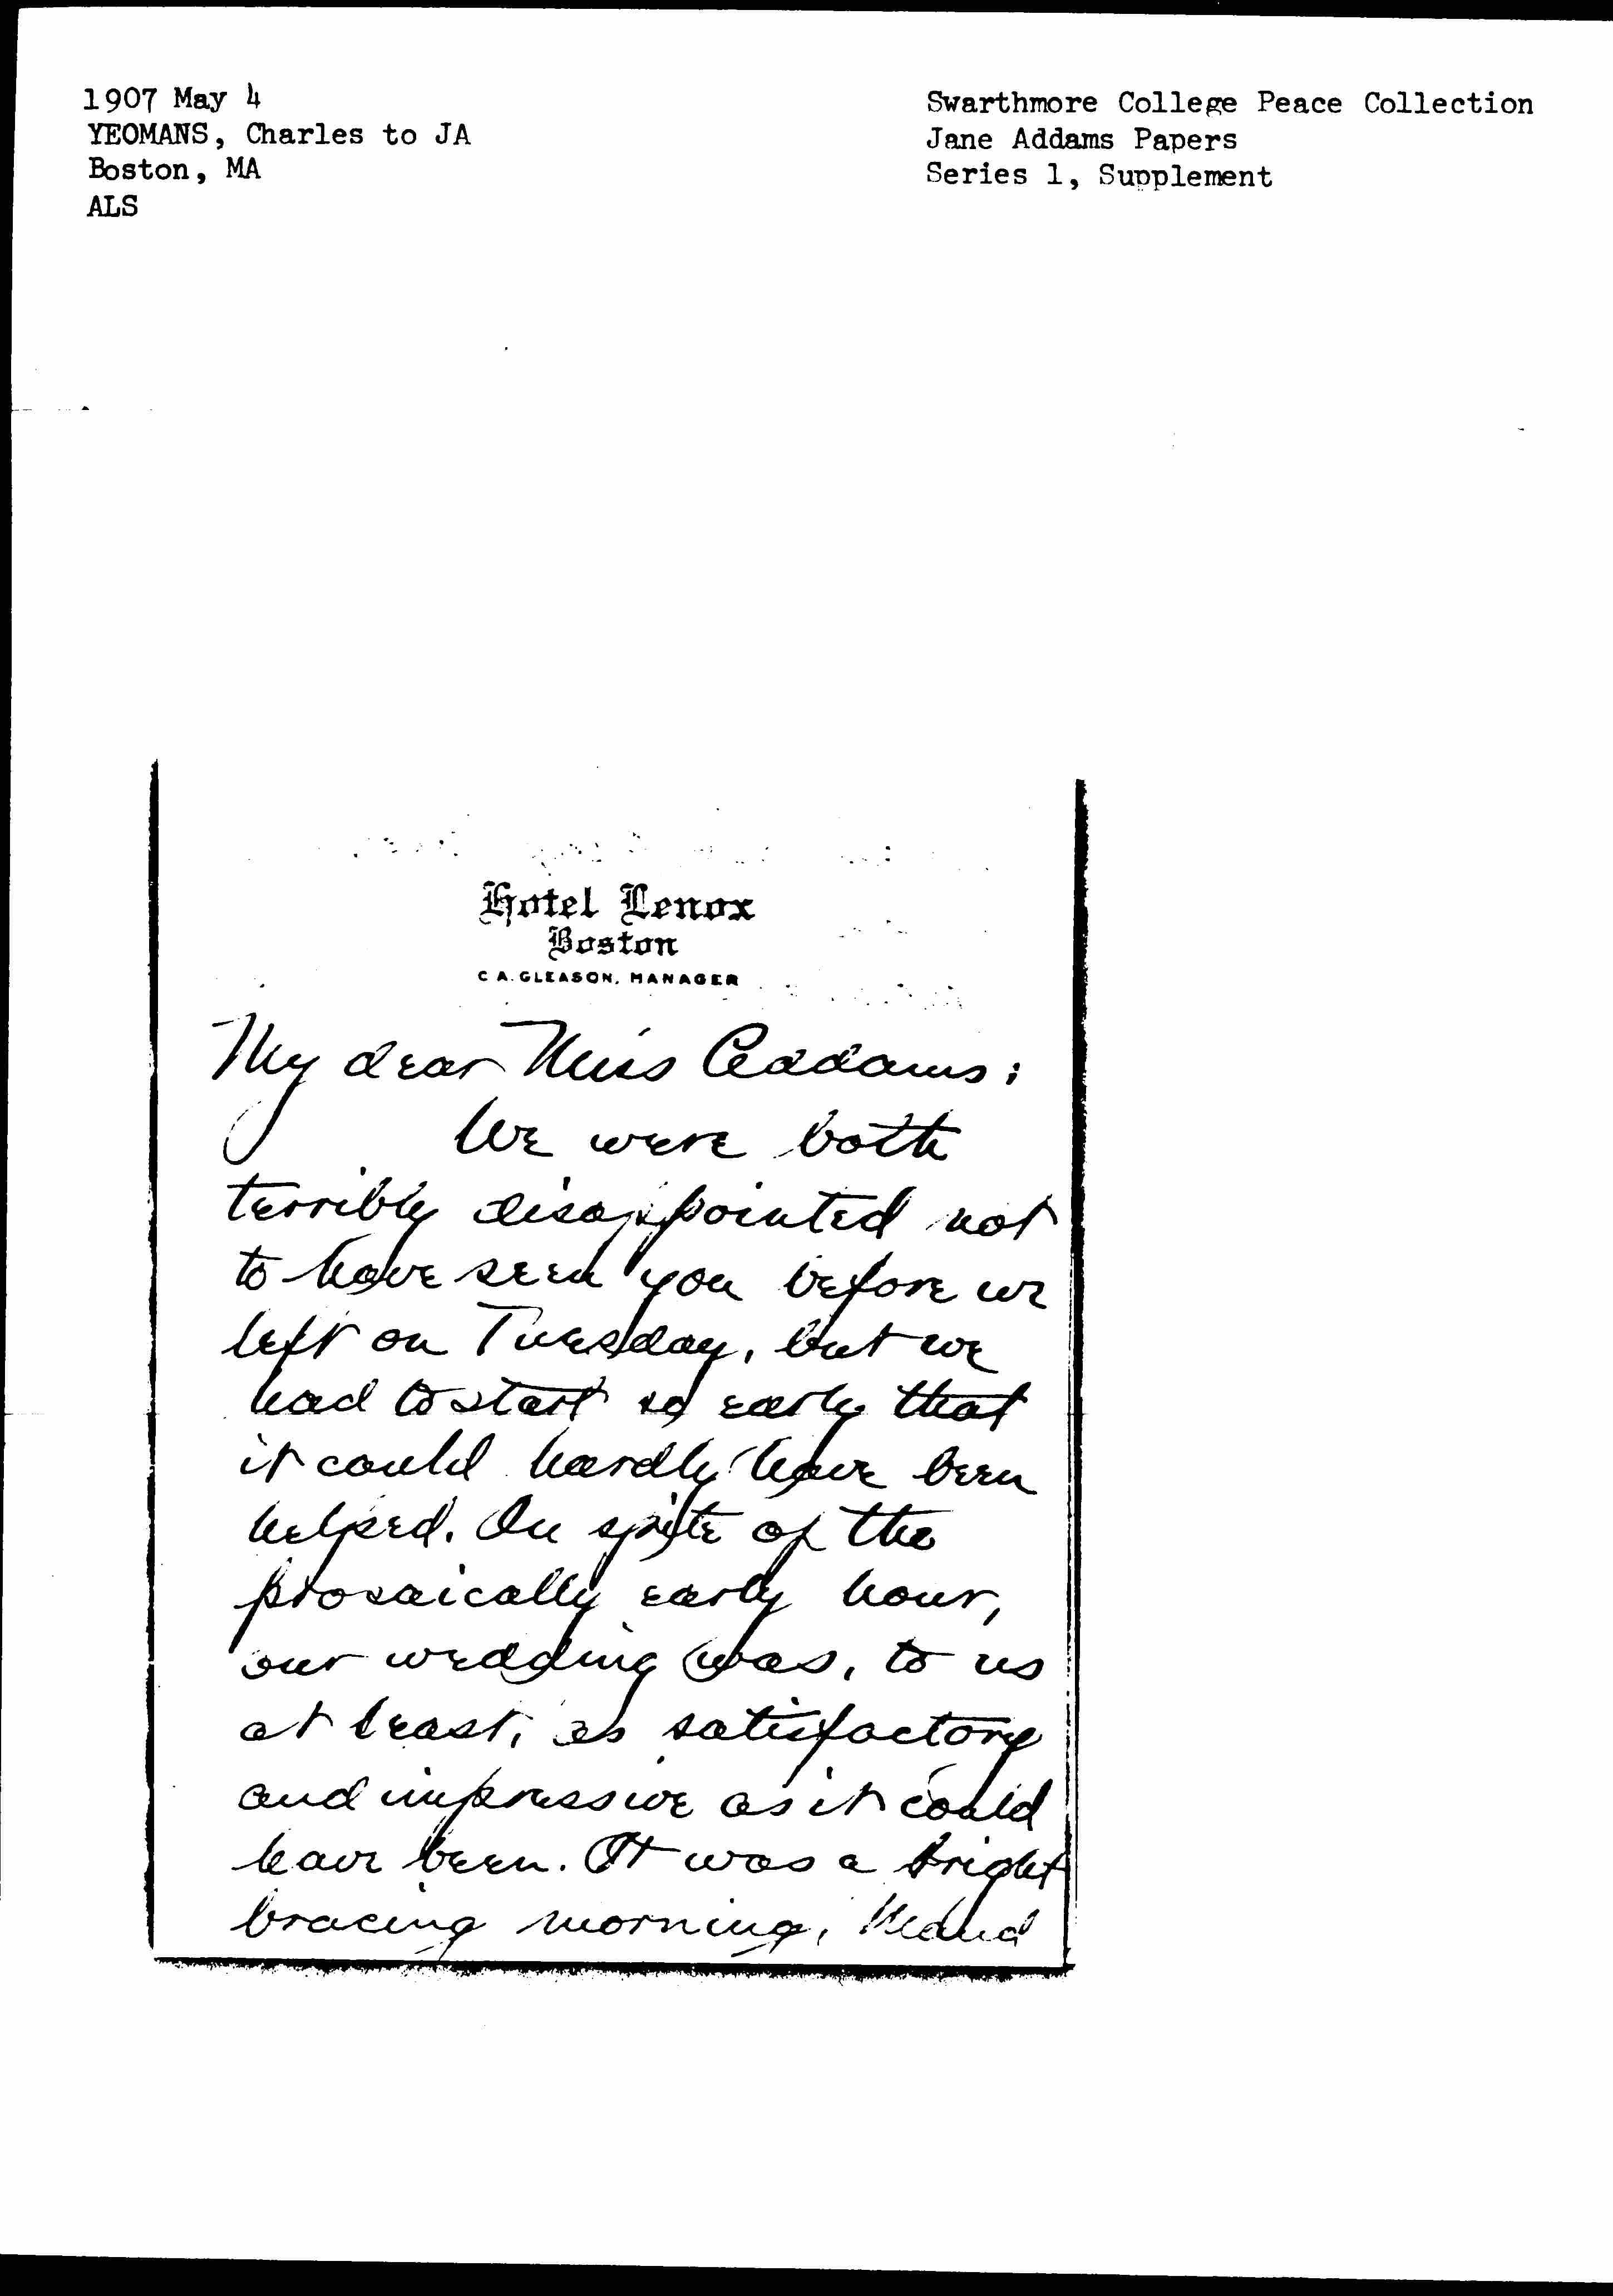 1907 May 4
YEOMANS, Charles to JA
Boston, MA
ALS
Swarthmore College Peace Collection
Jane Addams Papers
Series 1, Supplement
Hotel Lenox
Boston
C A. GLEASON, MANAGER
My dear Miss Addams:
We were both
terribly disappointed not
to have seen you before we
left on Tuesday, but we
had to start so early that
it could hardly have been
helped. In spite of the
prosaically early hour,
our wedding was, to us
at least, as satisfactory
and impressive as it could
have been. It was a bright
bracing morning, Maud